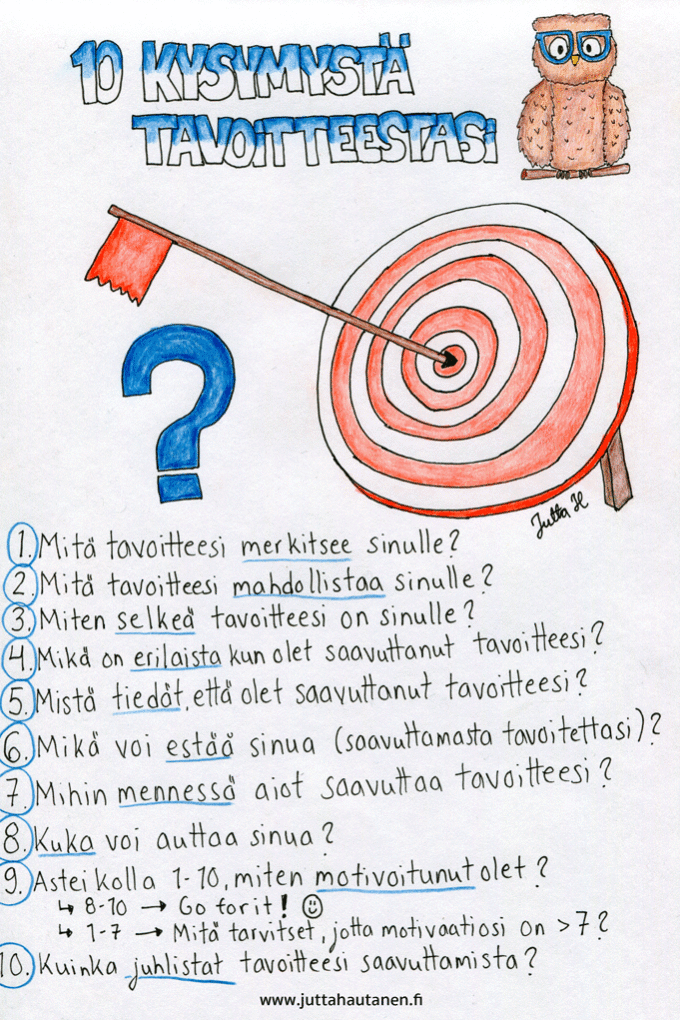 10 KYSYMYSTÄ
TAVOITTEESTASI
Jutta H
1. Mitä tavoitteesi merkitsee sinulle?
2. Mitä tavoitteesi mahdollistaa sinulle?
3. Miten selkeä tavoitteesi on sinulle?
4. Mikä on erilaista kun olet saavuttanut tavoitteesi?
5. Mistä tiedät, että olet saavuttanut tavoitteesi?
6. Mikä voi estää sinua (saavuttamasta tavoitettasi)?
7. Mihin mennessä aiot saavuttaa tavoitteesi?
8. Kuka voi auttaa sinua?
9. Asteikolla 1-10, miten motivoitunut olet?
↳ 8-10 → Go for it! ☺
↳ 1-7 → Mitä tarvitset, jotta motivaatiosi on >7?
10. Kuinka juhlistat tavoitteesi saavuttamista?
www.juttahautanen.fi